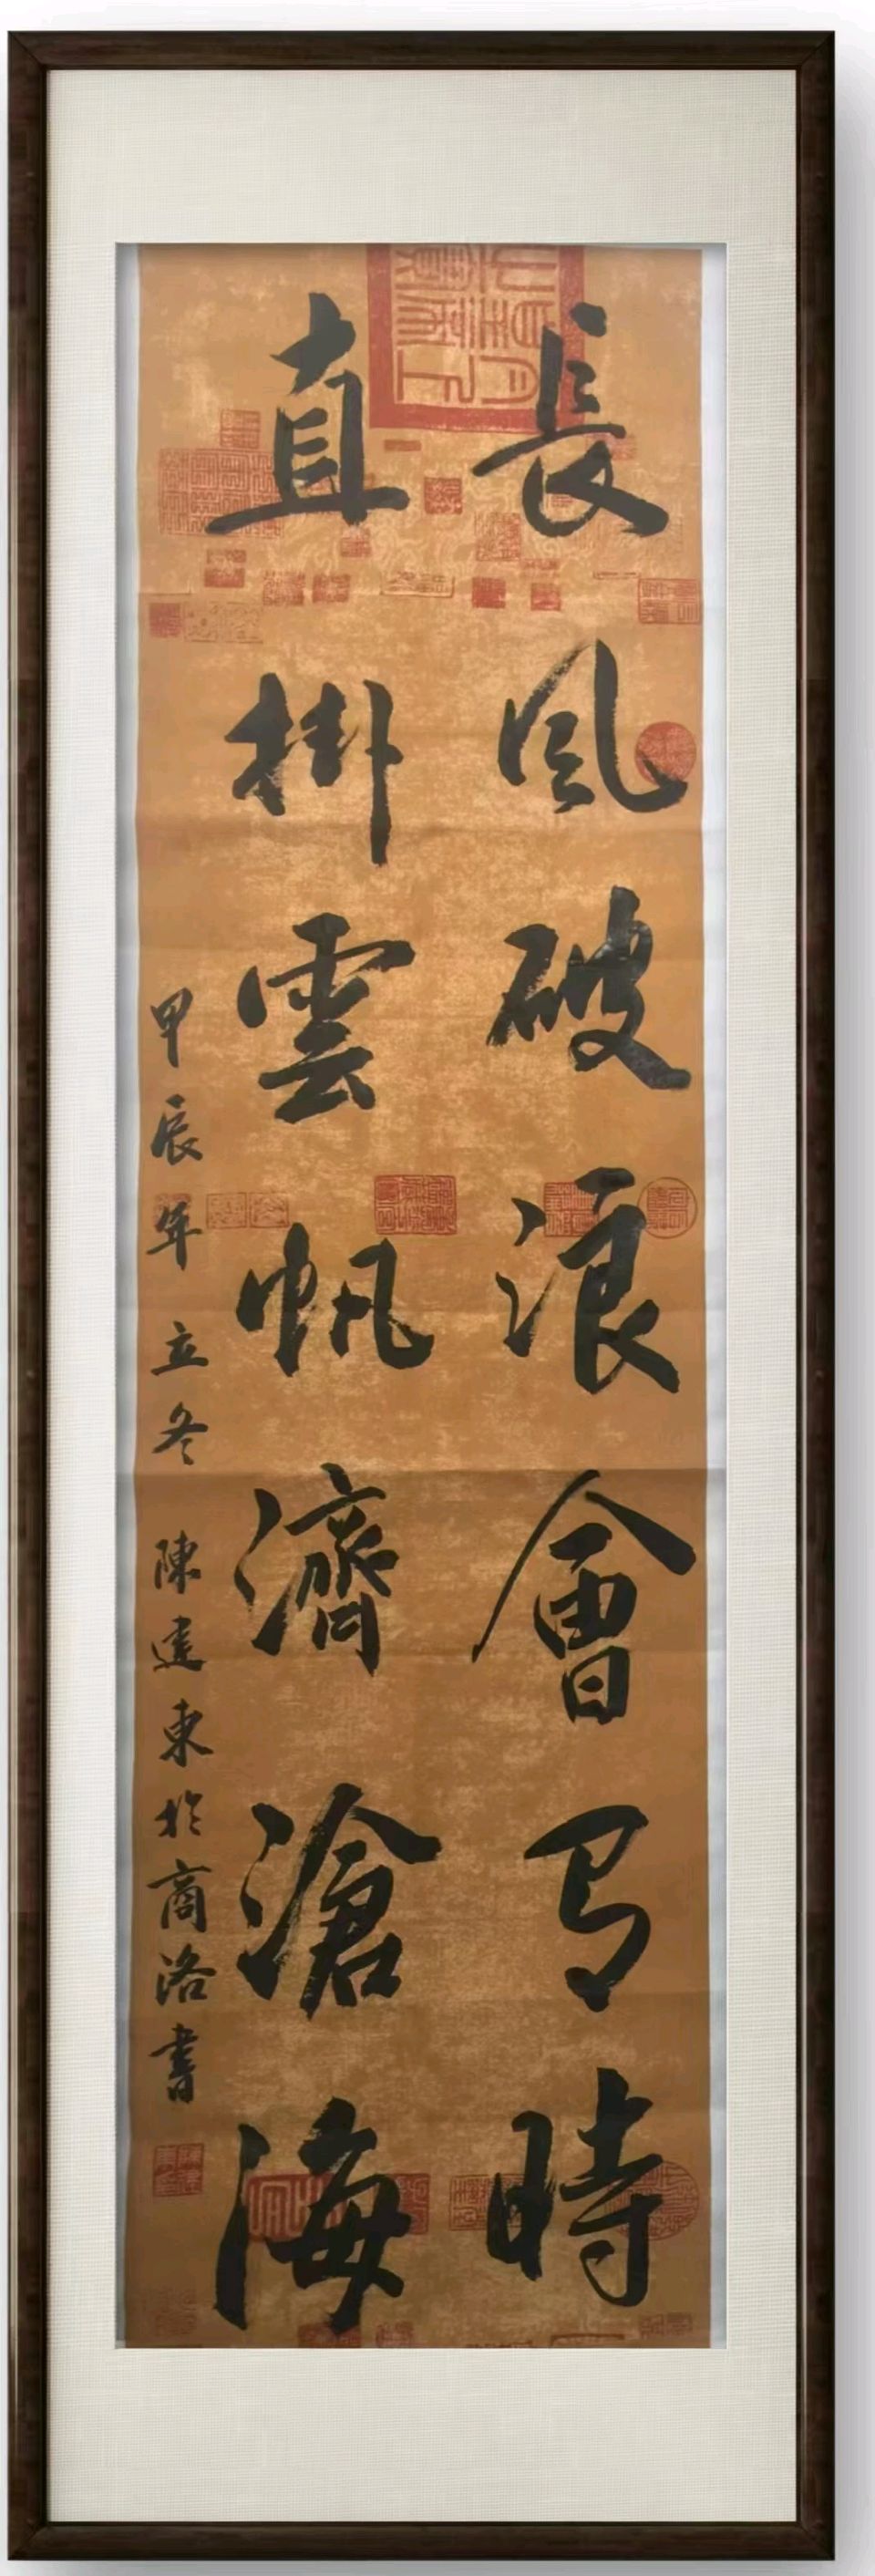 長風破浪會有時
直掛雲帆濟滄海
甲辰年立冬陳建東於商洛書